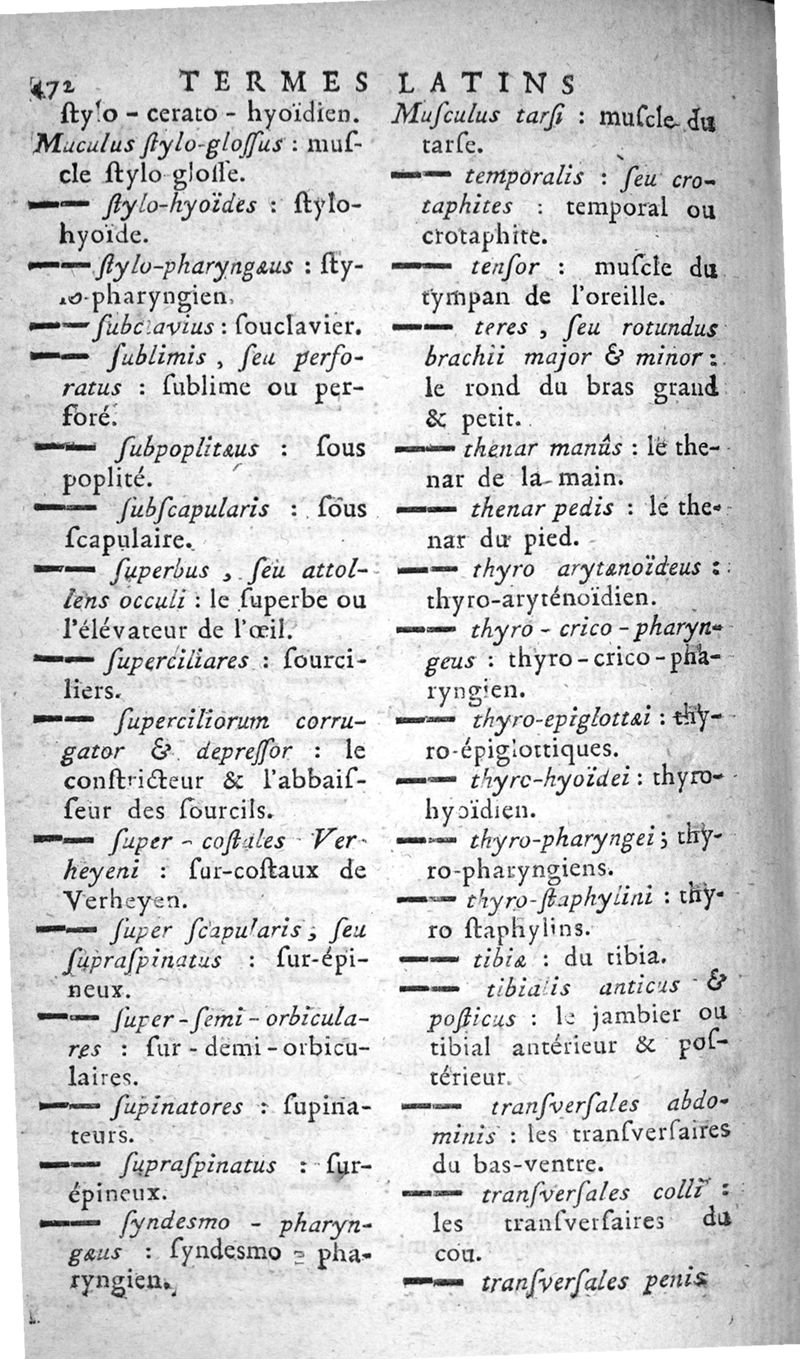 472 TERMES LATINS
ſtylo - cerato - hyoïdien.
Muculus ſtylo-gloſſus : muſ-
cle ſtylo gloſſe.
—— ſtylo-hyoïdes : ſtylo-
hyoïde.
—— ſtylo-pharyngæus : ſty-
lo-pharyngien.
—— ſubclavius : ſouclavier.
—— ſublimis , ſeu perfo-
ratus : ſublime ou per-
foré.
—— ſubpoplitæus : ſous
poplité.
—— ſubſcapularis : ſous
ſcapulaire.
—— ſuperbus , ſeu attol-
lens occuli : le ſuperbe ou
l'élévateur de l'œil.
—— ſuperciliares : ſourci-
liers.
—— ſuperciliorum corru-
gator & depreſſor : le
conſtricteur & l'abbaiſ-
ſeur des ſourcils.
—— ſuper - coſtales Ver-
heyeni : ſur-coſtaux de
Verheyen.
—— ſuper ſcapularis, ſeu
ſupraſpinatus : ſur-épi-
neux.
—— ſuper-ſemi-orbicula-
res : ſur - demi-orbicu-
laires.
—— ſupinatores : ſupina-
teurs.
—— ſupraſpinatus : ſur-
épineux.
—— ſyndesmo - pharyn-
gæus : ſyndesmo - pha-
ryngien.
Muſculus tarſi : muſcle du
tarſe.
—— temporalis : ſeu cro-
taphites : temporal ou
crotaphite.
—— tenſor : muſcle du
tympan de l'oreille.
—— teres , ſeu rotundus
brachii major & minor :
le rond du bras grand
& petit.
—— thenar manûs : le the-
nar de la main.
—— thenar pedis : le the-
nar du pied.
—— thyro arytænoïdeus :
thyro-aryténoïdien.
—— thyro - crico - pharyn-
geus : thyro-crico-pha-
ryngien.
—— thyro-epiglottæi : thy-
ro-épiglottiques.
—— thyro-hyoïdei : thyro-
hyoïdien.
—— thyro-pharyngei ; thy-
ro-pharyngiens.
—— thyro-ſtaphylini : thy-
ro ſtaphylins.
—— tibiæ : du tibia.
—— tibialis anticus &
poſticus : le jambier ou
tibial antérieur & poſ-
térieur.
—— tranſverſales abdo-
minis : les tranſverſaires
du bas-ventre.
—— tranſverſales colli :
les tranſverſaires du
cou.
—— tranſverſales penis